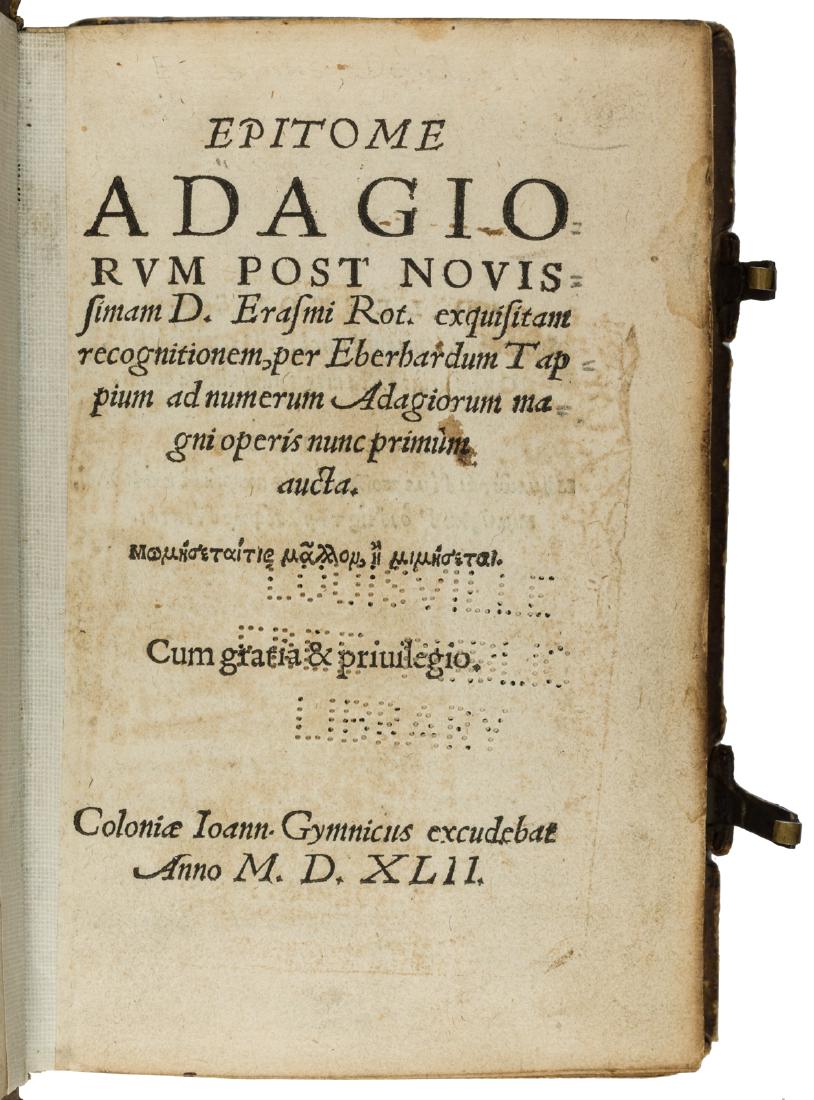 EPITOME
ADAGIO=
RVM POST NOVIS=
ſimam D. Eraſmi Rot. exquiſitam
recognitionem, per Eberhardum Tap=
pium ad numerum Adagiorum ma=
gni operis nunc primùm
aucta.
Μωμήσεταί τις μᾶλλον, ἢ μιμήσεται.
LOUISVILLE
FREE PUBLIC
Cum gratia & priuilegio.
LIBRARY
Coloniæ Ioann. Gymnicus excudebat
Anno M. D. XLII.